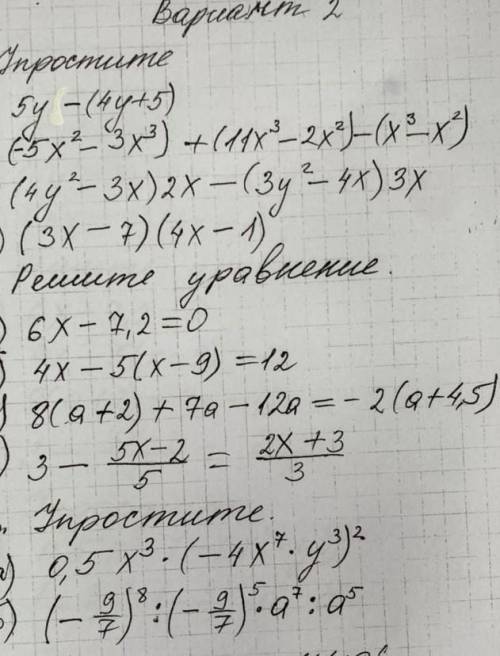 Вариант 2
Упростите
5y - (4y+5)
(-5x² - 3x³) + (11x³ - 2x²) - (x³ - x²)
(4y² - 3x) 2x - (3y² - 4x) 3x
) (3x - 7) (4x - 1)
Решите уравнение.
) 6x - 7,2 = 0
) 4x - 5(x - 9) = 12
) 8(a+2) + 7a - 12a = - 2(a+4,5)
) 3 - (5x-2)/5 = (2x+3)/3
. Упростите.
а) 0,5x³ · (-4x⁷ · y³)²
б) (-9/7)⁸ : (-9/7)⁵ · a⁷ : a⁵